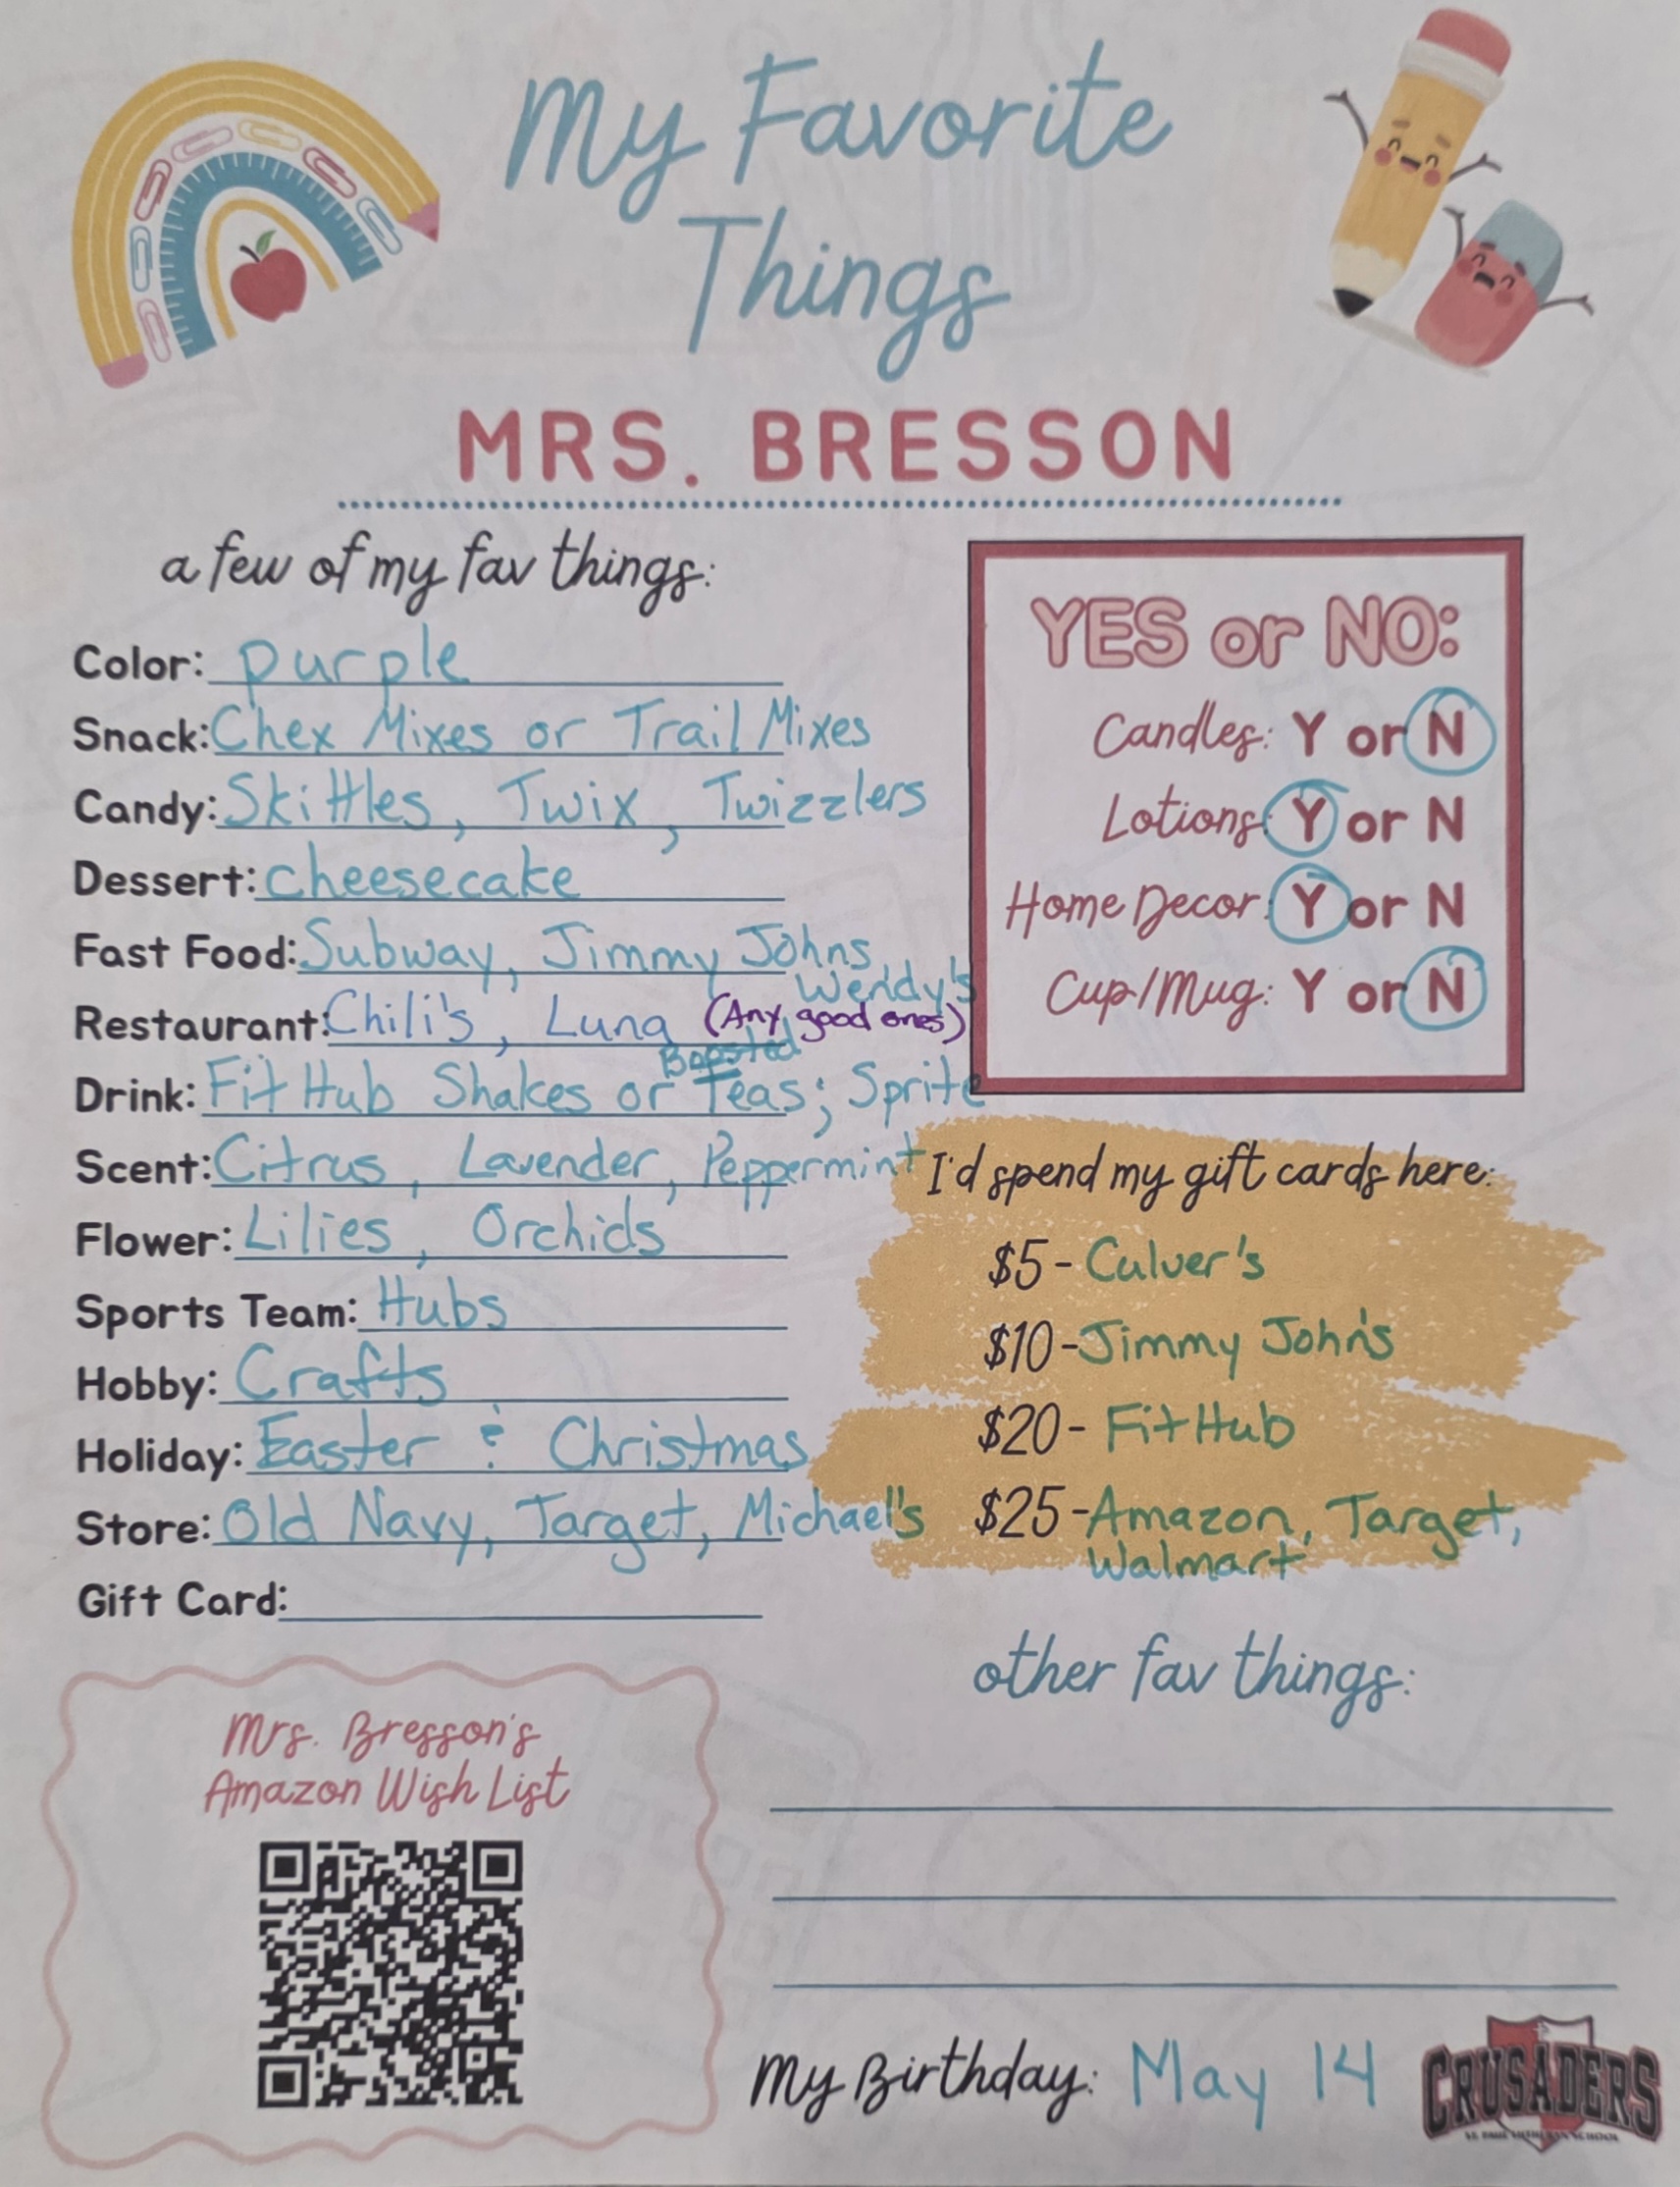 My Favorite
Things
MRS. BRESSON
a few of my fav things:
Color: purple
Snack: Chex Mixes or Trail Mixes
Candy: Skittles, Twix, Twizzlers
Dessert: cheesecake
Fast Food: Subway, Jimmy Johns,
Wendy's
Restaurant: Chili's, Luna (Any good ones)
Boosted
Drink: Fit Hub Shakes or Teas; Sprite
Scent: Citrus, Lavender, Peppermint
Flower: Lilies, Orchids
Sports Team: Hubs
Hobby: Crafts
Holiday: Easter & Christmas
Store: Old Navy, Target, Michael's
Gift Card:
YES or NO:
Candles: Y or N
Lotions: Y or N
Home Decor: Y or N
Cup/Mug: Y or N
I'd spend my gift cards here:
$5 - Culver's
$10 - Jimmy John's
$20 - FitHub
$25 - Amazon, Target,
Walmart
other fav things:
Mrs. Bresson's
Amazon Wish List
My Birthday: May 14
CRUSADERS
ST. PAUL LUTHERAN SCHOOL